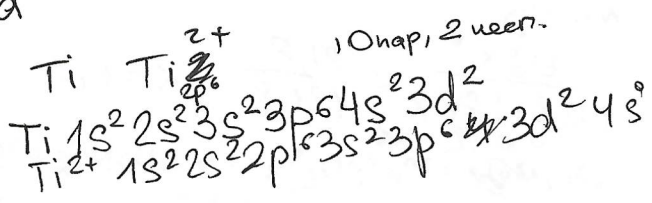 2+
Ti Ti , 0 нар, 2 неел.
2p⁶
Ti 1s² 2s² 3s² 3p⁶ 4s² 3d²
Ti²⁺ 1s² 2s² 2p⁶ 3s² 3p⁶ 3d² 4s⁰